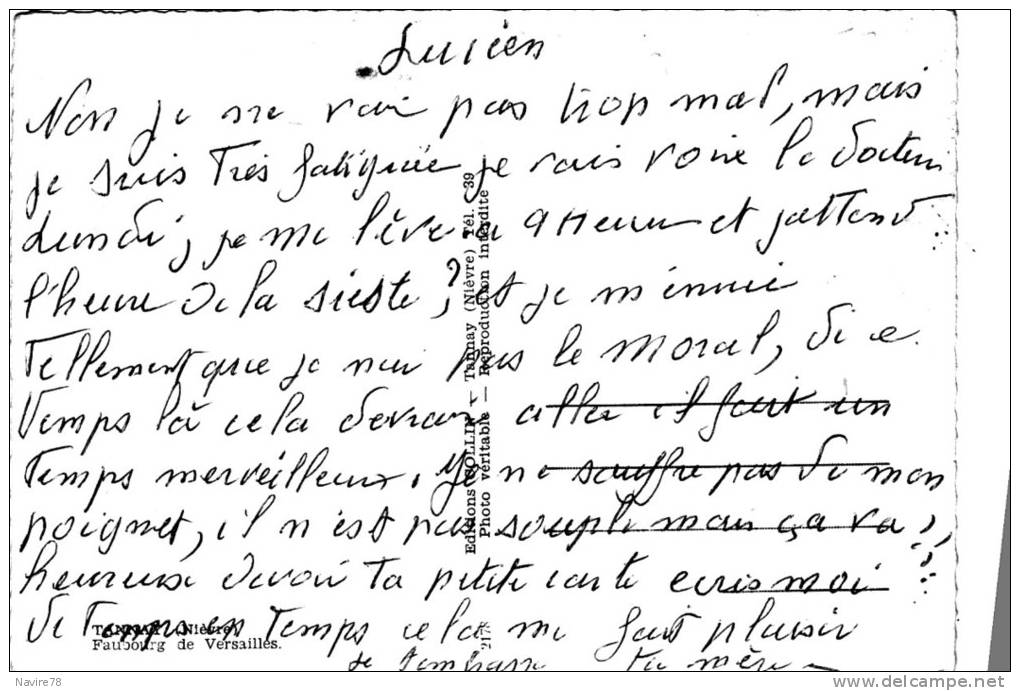 Lucien
Non je ne vai pas trop mal, mais
je suis Très fatiguée je vais voire le docteur
Lundi, je me lève à 9 Heures et j'attend
l'heure de la sieste, et je m'ennuie
Tellement que je n'ai pas le moral, di ce
Temps là cela devrai aller il fait un
Temps merveilleux. Je ne souffre pas de mon
poignet, il n'est pas souple mais ça va,
heureuse d'avoir Ta petite carte ecris moi
de Temps en Temps cela me fait plaisir
je t'embrasse ta mère
TANNAY (Nièvre)
Faubourg de Versailles.
Editions COLLIN — Tannay (Nièvre) Tél. 39
Photo véritable — Reproduction interdite
Navire78
http://www.delcampe.net